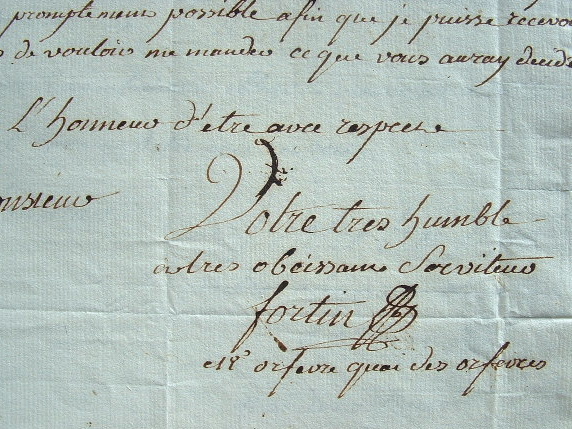 promptement possible afin que je puisse recevo
de vouloir me mander ce que vous auray decidé
L'honneur d'etre avec respect
onsieur
Votre tres humble
et tres obeissant Serviteur
fortin
md orfevre quai des orfevres